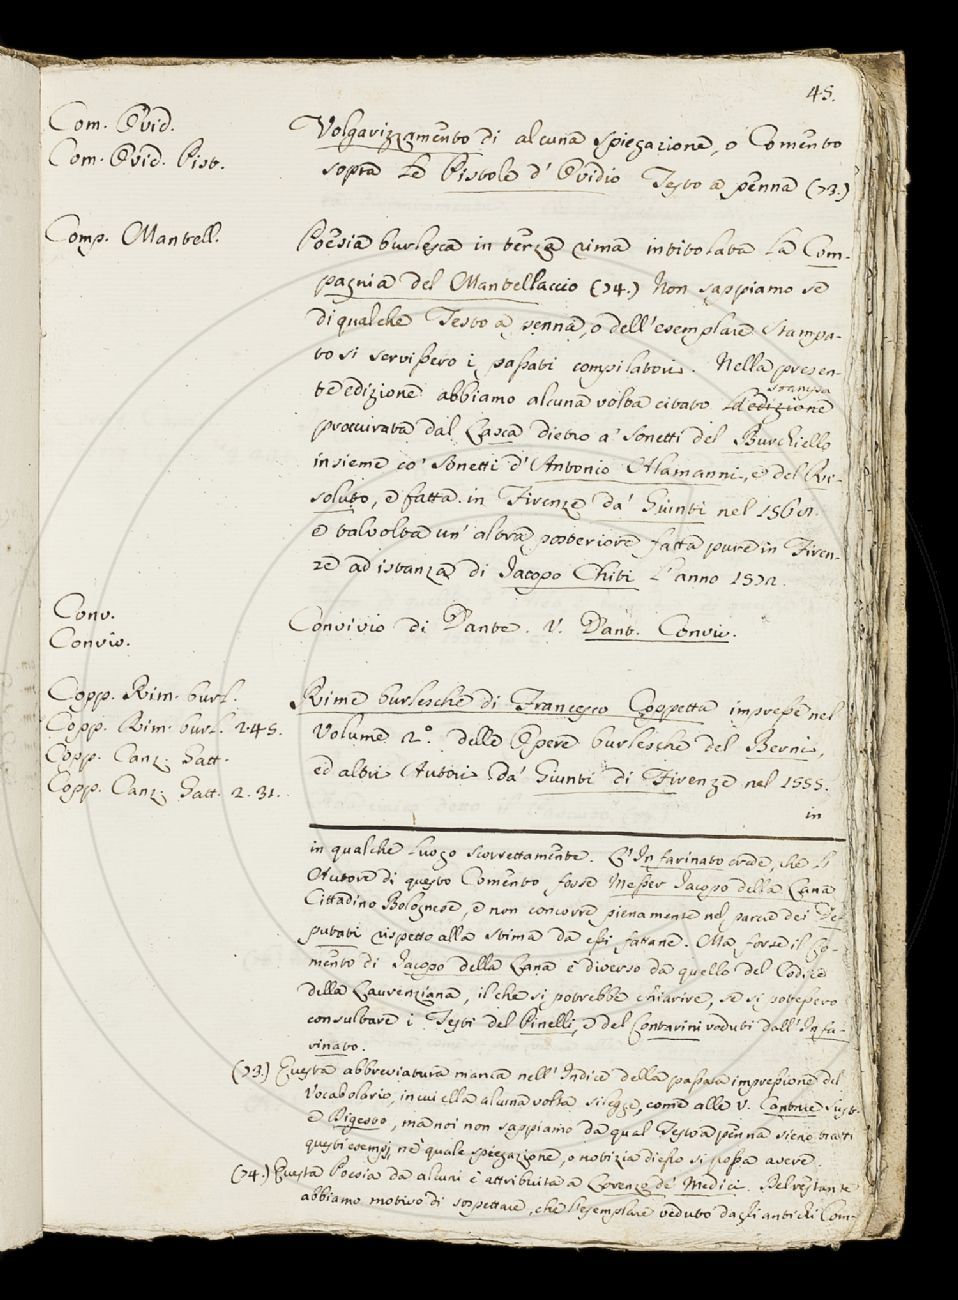 45.
Com. Ovid.
Com. Ovid. Pist.
Volgarizzamento di alcuna spiegazione, o Comento
sopra le Pistole d' Ovidio Testo a penna (73.)
Comp. Mantell.
Poesia burlesca in terza rima intitolata La Com-
pagnia del Mantellaccio (74.) Non sappiamo se
di qualche Testo a penna, o dell' esemplare stampa-
to si servissero i passati compilatori. Nella presen-
te edizione abbiamo alcuna volta citato l'edizione
stampa
proccurata dal Lasca dietro a' sonetti del Burchiello
insieme co' sonetti d' Antonio Alamanni, e del Ri-
soluto, e fatta in Firenze da' Giunti nel
e talvolta un' altra posteriore fatta pure in Firen-
ze ad istanza di Jacopo Chiti l'anno 1572.
Conv.
Conviv.
Convivio di Dante. V. Dant. Conviv.
Copp. Rim. burl.
Copp. Rim. burl. 2.45.
Copp. Canz. Gatt.
Copp. Canz. Gatt. 2. 31.
Rime burlesche di Francesco Coppetta impresse nel
Volume 2.° delle Opere burlesche del Berni,
ed altri Autori da' Giunti di Firenze nel 1555.
in
in qualche luogo scorrettamente. L'Infarinato crede, che l'
Autore di questo Comento fosse Messer Jacopo della Lana
Cittadino Bolognese, e non concorre pienamente nel parere dei De-
putati rispetto alla stima da essi fattane. Ma forse il Co-
mento di Jacopo della Lana è diverso da quello del Codice
della Laurenziana, il che si potrebbe chiarire, se si potessero
consultare i Testi del Pinelli, e del Contarini veduti dall' Infa-
rinato.
(73.) Questa abbreviatura manca nell' Indice della passata impressione del
Vocabolario, in cui ella alcuna volta si legge, come alle V.
e Digesto, ma noi non sappiamo da qual Testo a penna sieno tratti
questi esempj, nè quale spiegazione, o notizia di esso si possa avere.
(74.) Questa Poesia da alcuni è attribuita a Lorenzo de' Medici. Del restante
abbiamo motivo di sospettare, che l'esemplare veduto dagli antichi Com-